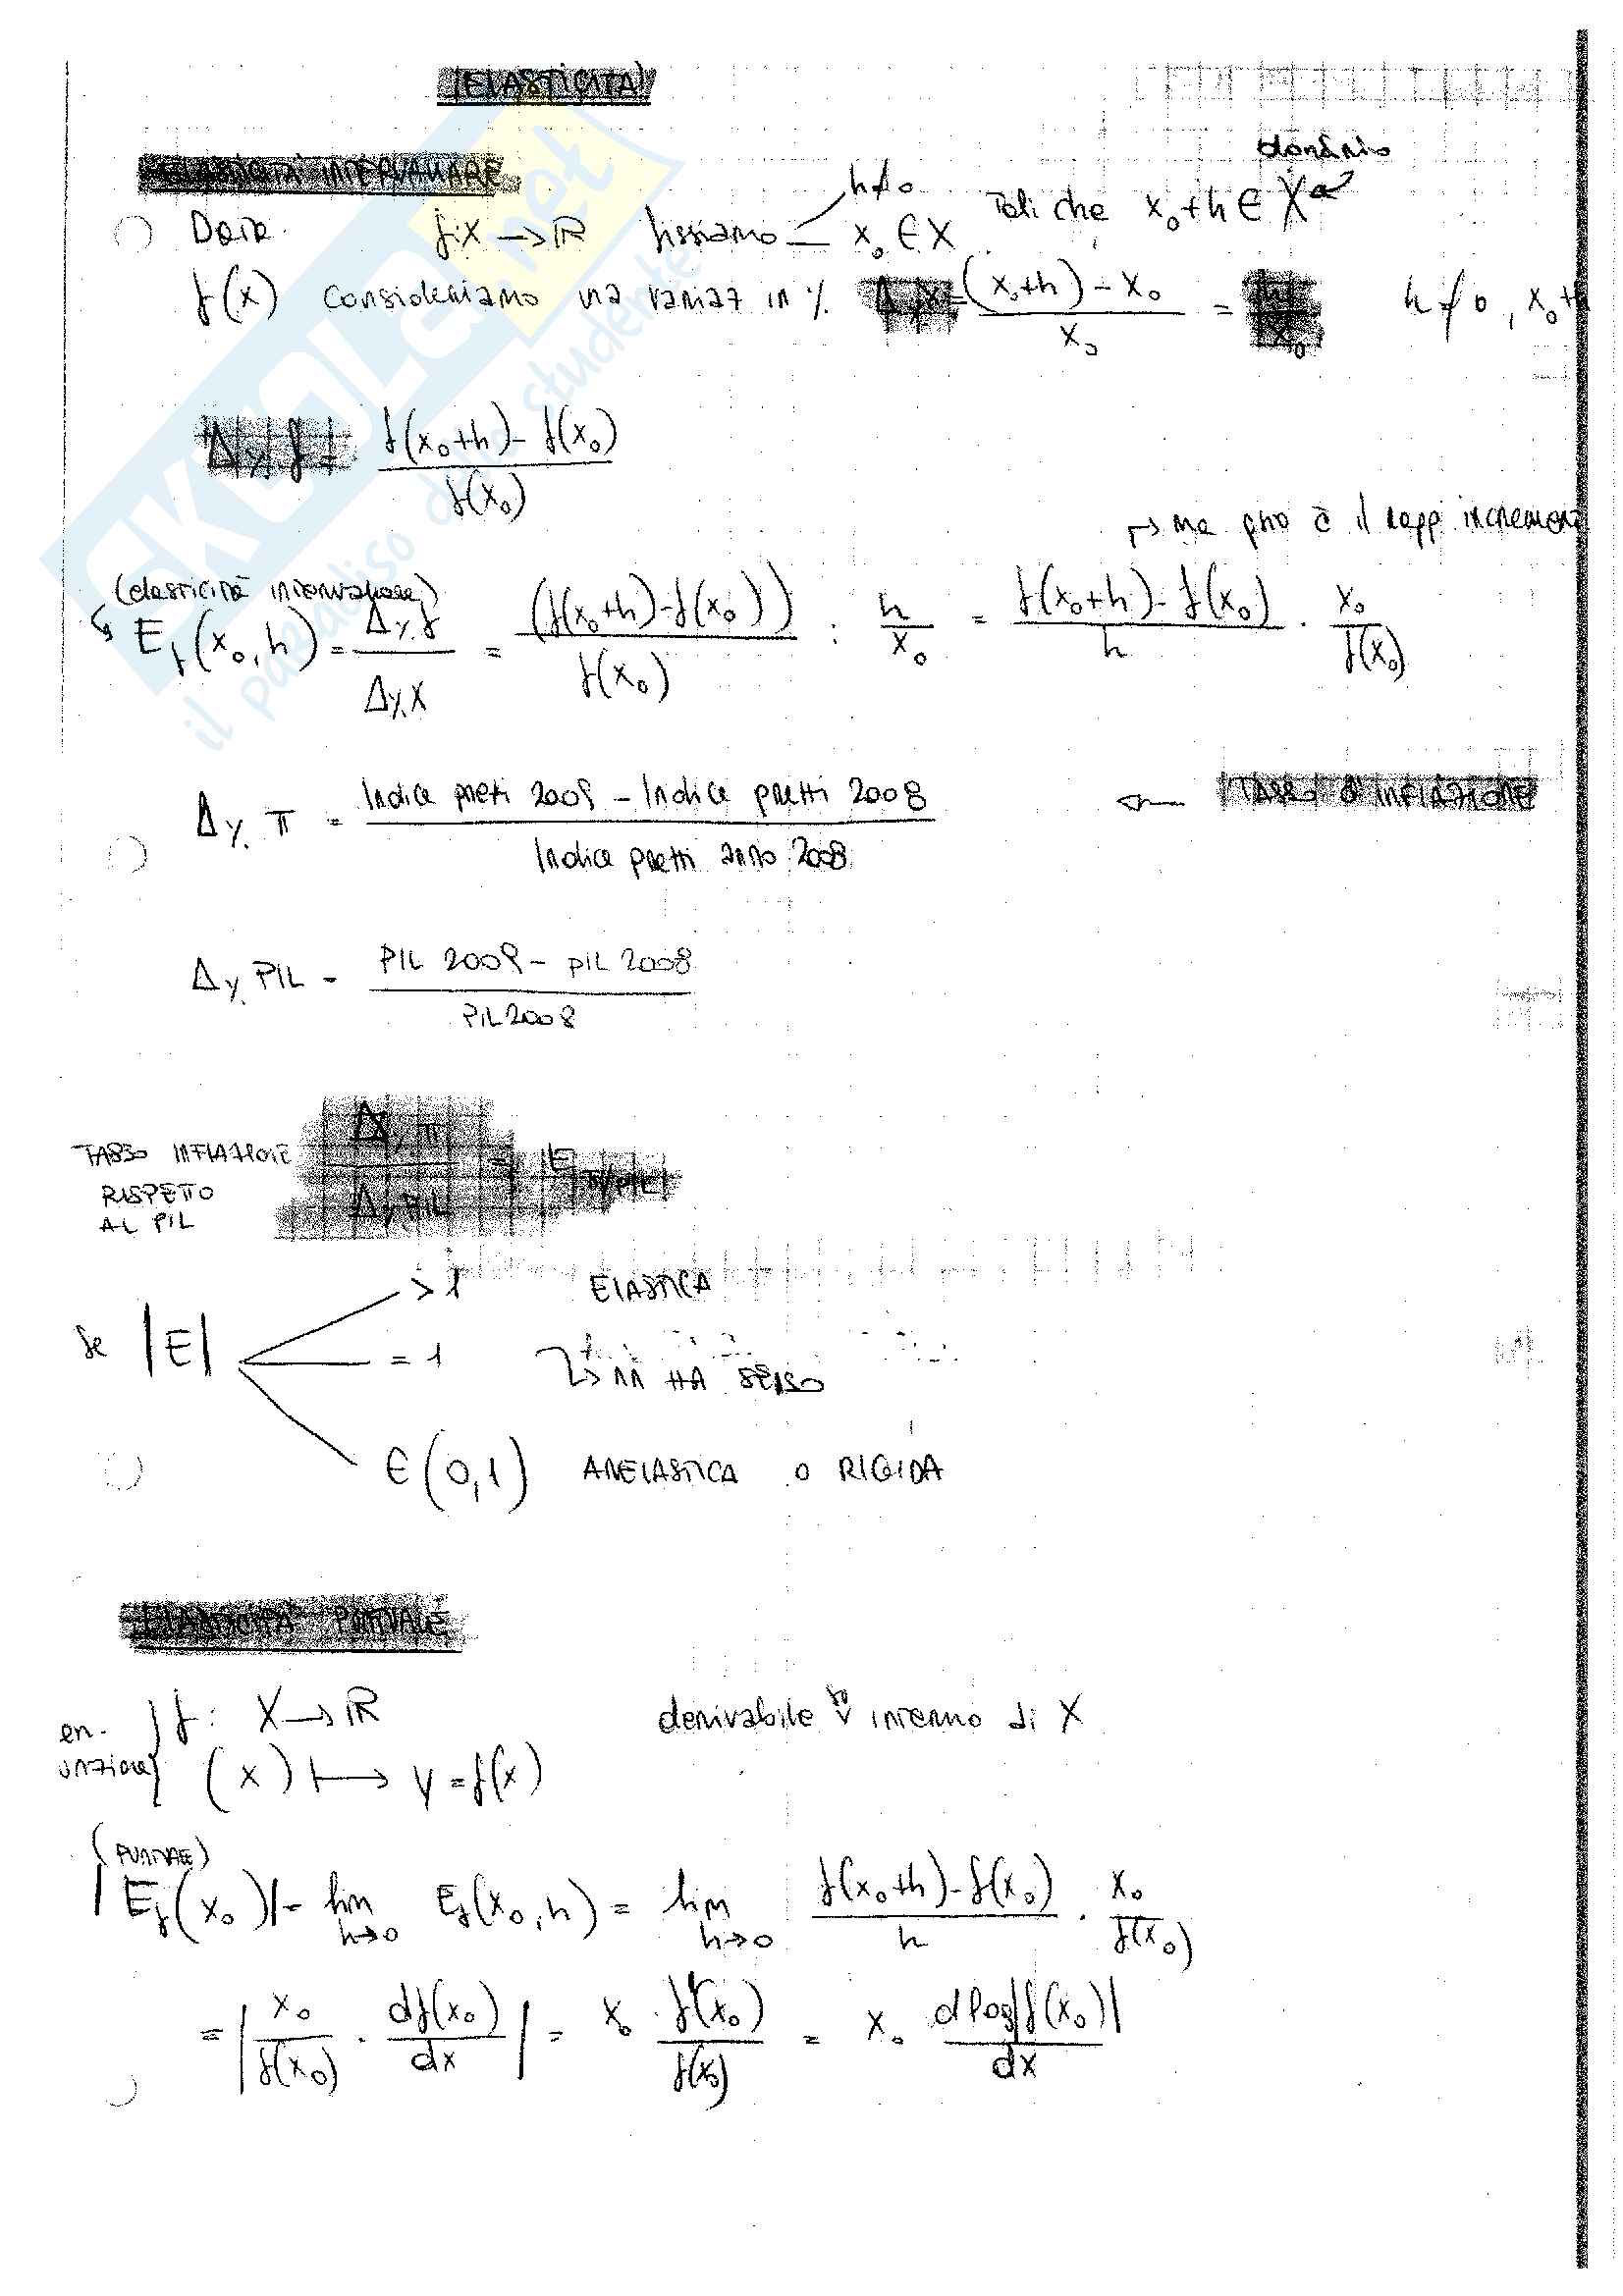 ELASTICITÀ
ELASTICITÀ INTERVALLARE
dominio
Data f: X → R fissiamo h≠0 x₀ ∈ X Tali che x₀+h ∈ X
f(x) consideriamo una variaz in % Δ% x = (x₀+h) - x₀ / x₀ = h / x₀ h≠0, x₀+h
Δ% f = f(x₀+h) - f(x₀) / f(x₀)
→ ma pno è il rapp increment
(elasticità intervallare)
E_f(x₀,h) = Δ% f / Δ% x = (f(x₀+h) - f(x₀)) / f(x₀) : h / x₀ = f(x₀+h) - f(x₀) / h · x₀ / f(x₀)
Δ% π = Indice prezzi 2009 - Indice prezzi 2008 / Indice prezzi anno 2008 ← TASSO D'INFLAZIONE
Δ% PIL = PIL 2009 - PIL 2008 / PIL 2008
TASSO INFLAZIONE
RISPETTO
AL PIL
Δ% π / Δ% PIL = E π/PIL
> 1 ELASTICA
Se |E| = 1 → NN HA SENSO
∈ (0,1) ANELASTICA O RIGIDA
ELASTICITÀ PUNTUALE
f: X → R derivabile interno di X
(x) ↦ y = f(x)
(PUNTUALE)
|E_f(x₀)| = lim h→0 E_f(x₀,h) = lim h→0 f(x₀+h) - f(x₀) / h · x₀ / f(x₀)
= | x₀ / f(x₀) · df(x₀) / dx | = x₀ · f'(x₀) / f(x₀) = x₀ d log|f(x₀)| / dx